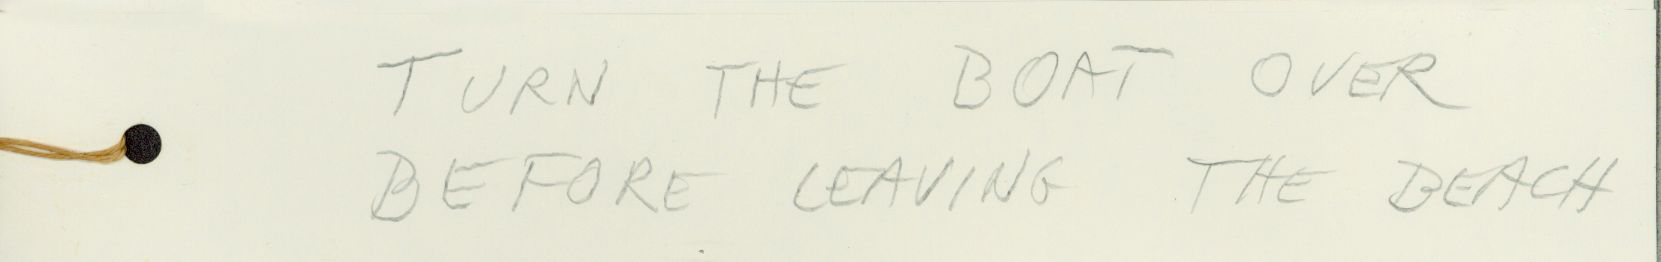 TURN THE BOAT OVER
BEFORE LEAVING THE BEACH